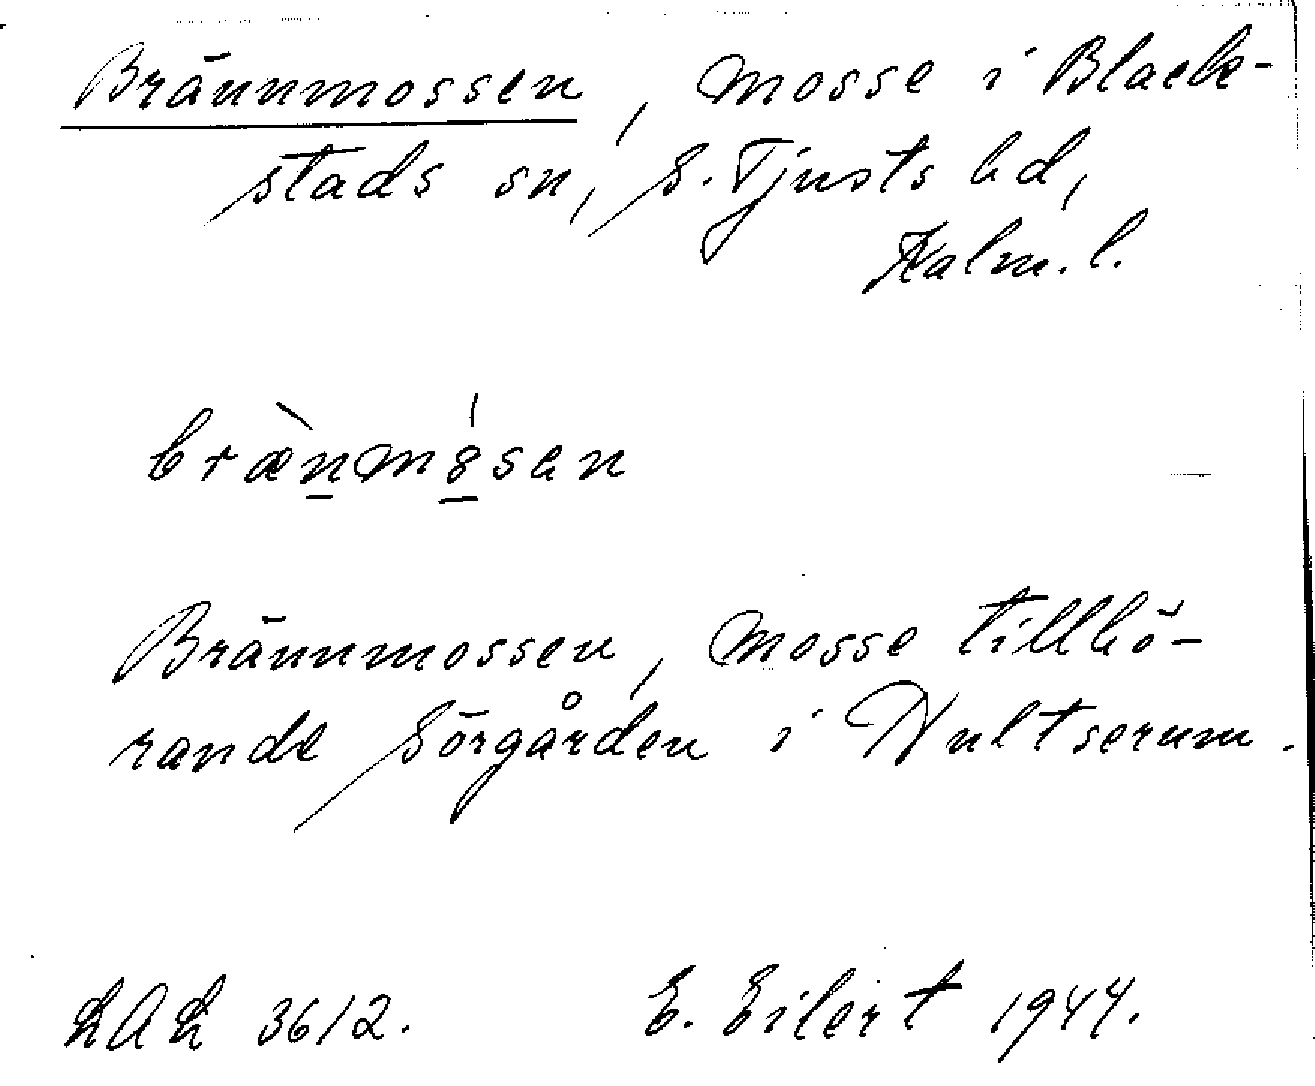 Brännmossen, mosse i Black-
stads sn, S. Tjusts hd,
Kalm. l.
bræ̀n̲mó̲sen
Brännmossen, mosse tillhö-
rande Sörgården i Hultserum.
LAL 3612. E. Eilert 1944.